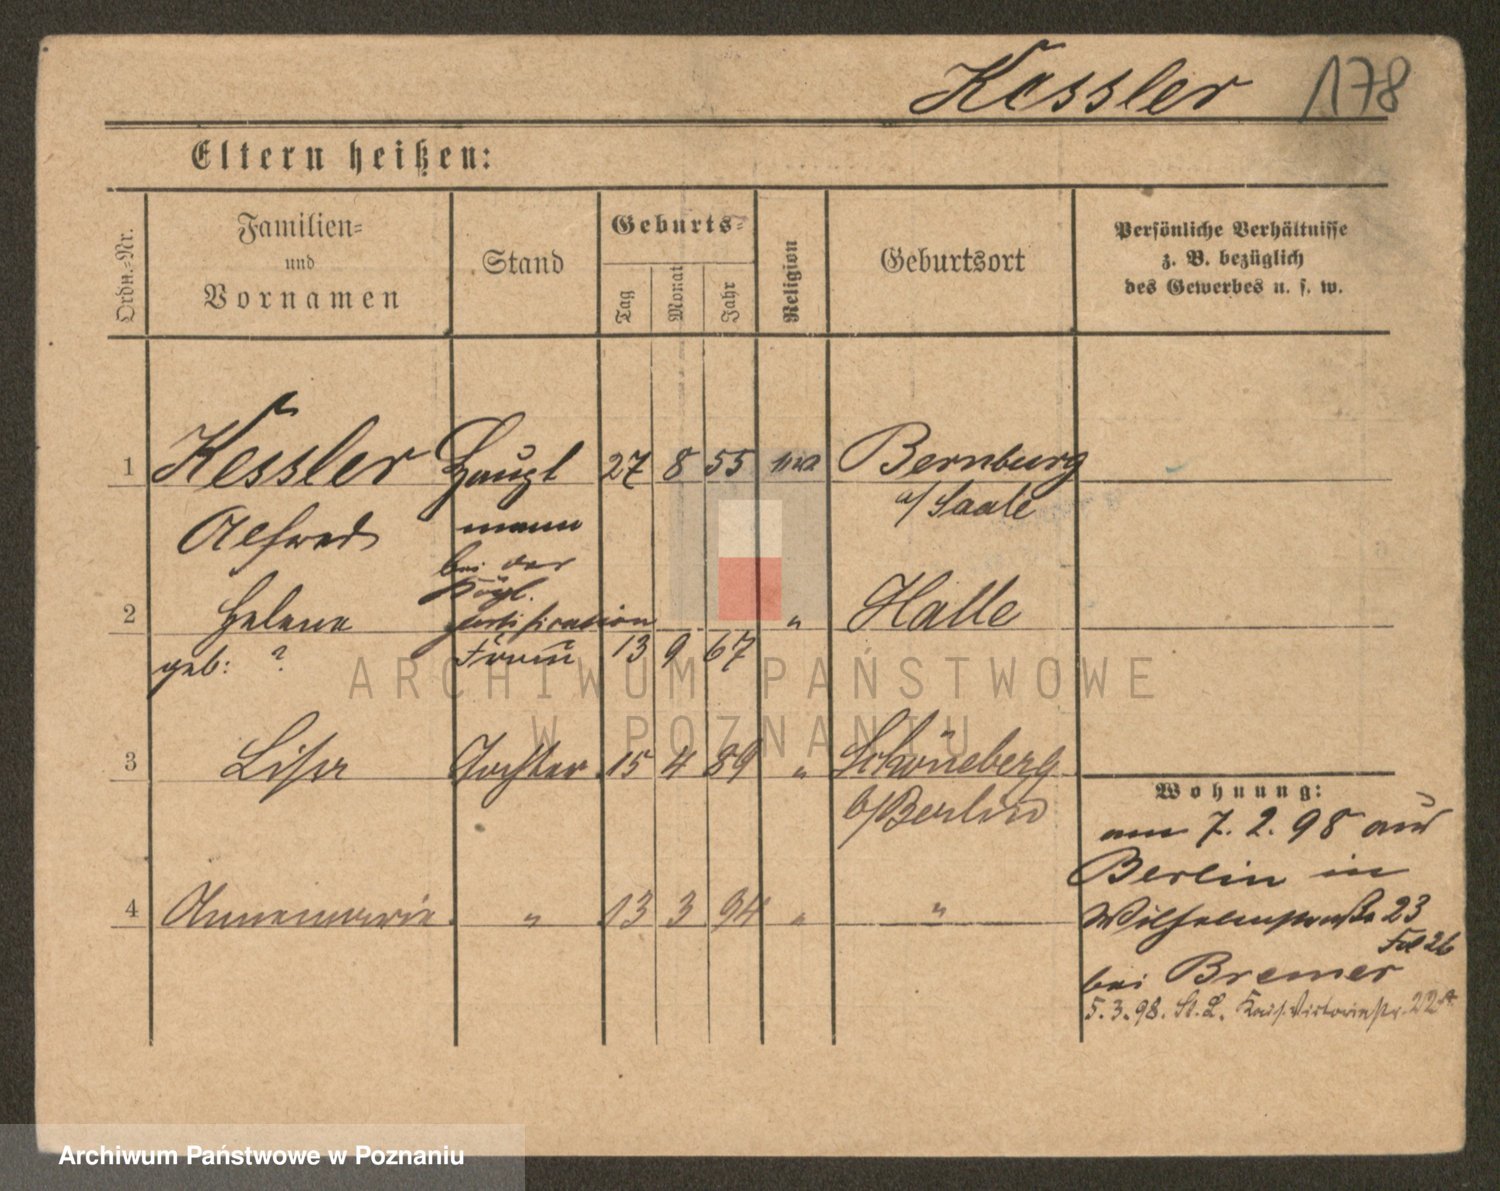 Kessler 178
Eltern heißen:
Ordn.-Nr.
Familien-
und
Vornamen
Stand
Geburts-
Tag
Monat
Jahr
Religion
Geburtsort
Persönliche Verhältnisse
z. B. bezüglich
des Gewerbes u. s. w.
1 Kessler Haupt 27 8 55 Bernburg
Alfred mann a/Saale
bei der
Kögl.
2 Helene fortifikation " Halle
geb: ? Frau 13 9 67
3 Lisa Tochter 15 4 89 " Schöneberg
b/Berlin
4 Annemarie " 13 3 94 " "
Wohnung:
am 7. 2. 98 aus
Berlin in
Wilhelmstraße 23
bei Bremer
5. 3. 98. St. L. Kais. Victoriastr. 22
ARCHIWUM PAŃSTWOWE
W POZNANIU
Archiwum Państwowe w Poznaniu